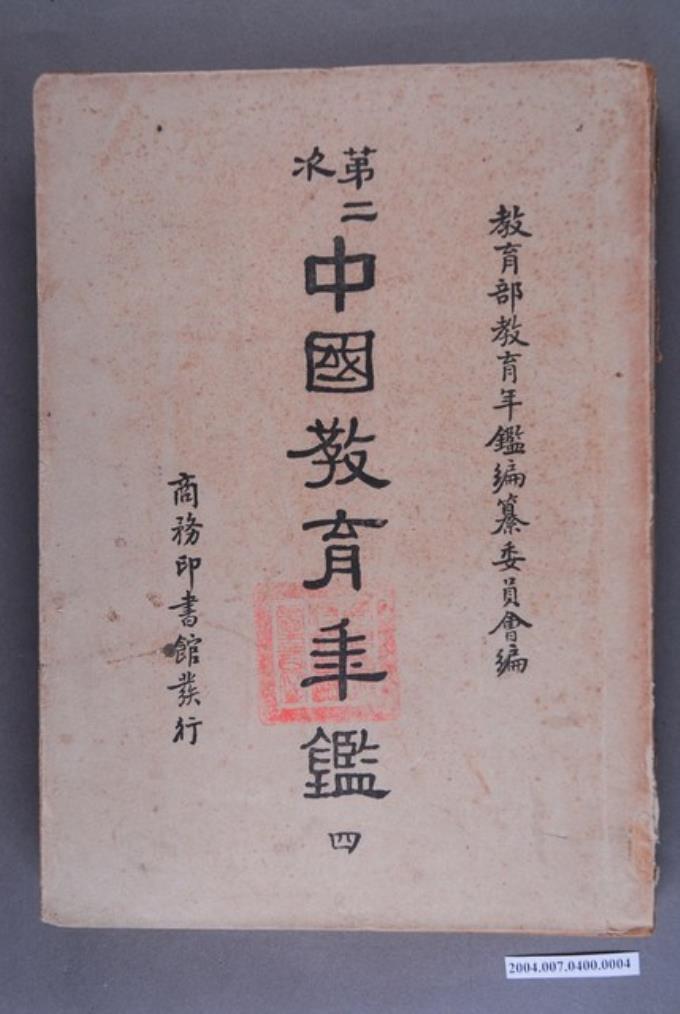 教育部教育年鑑編纂委員會編
第二次
中國教育年鑑 四
商務印書館發行
2004.007.0400.0004